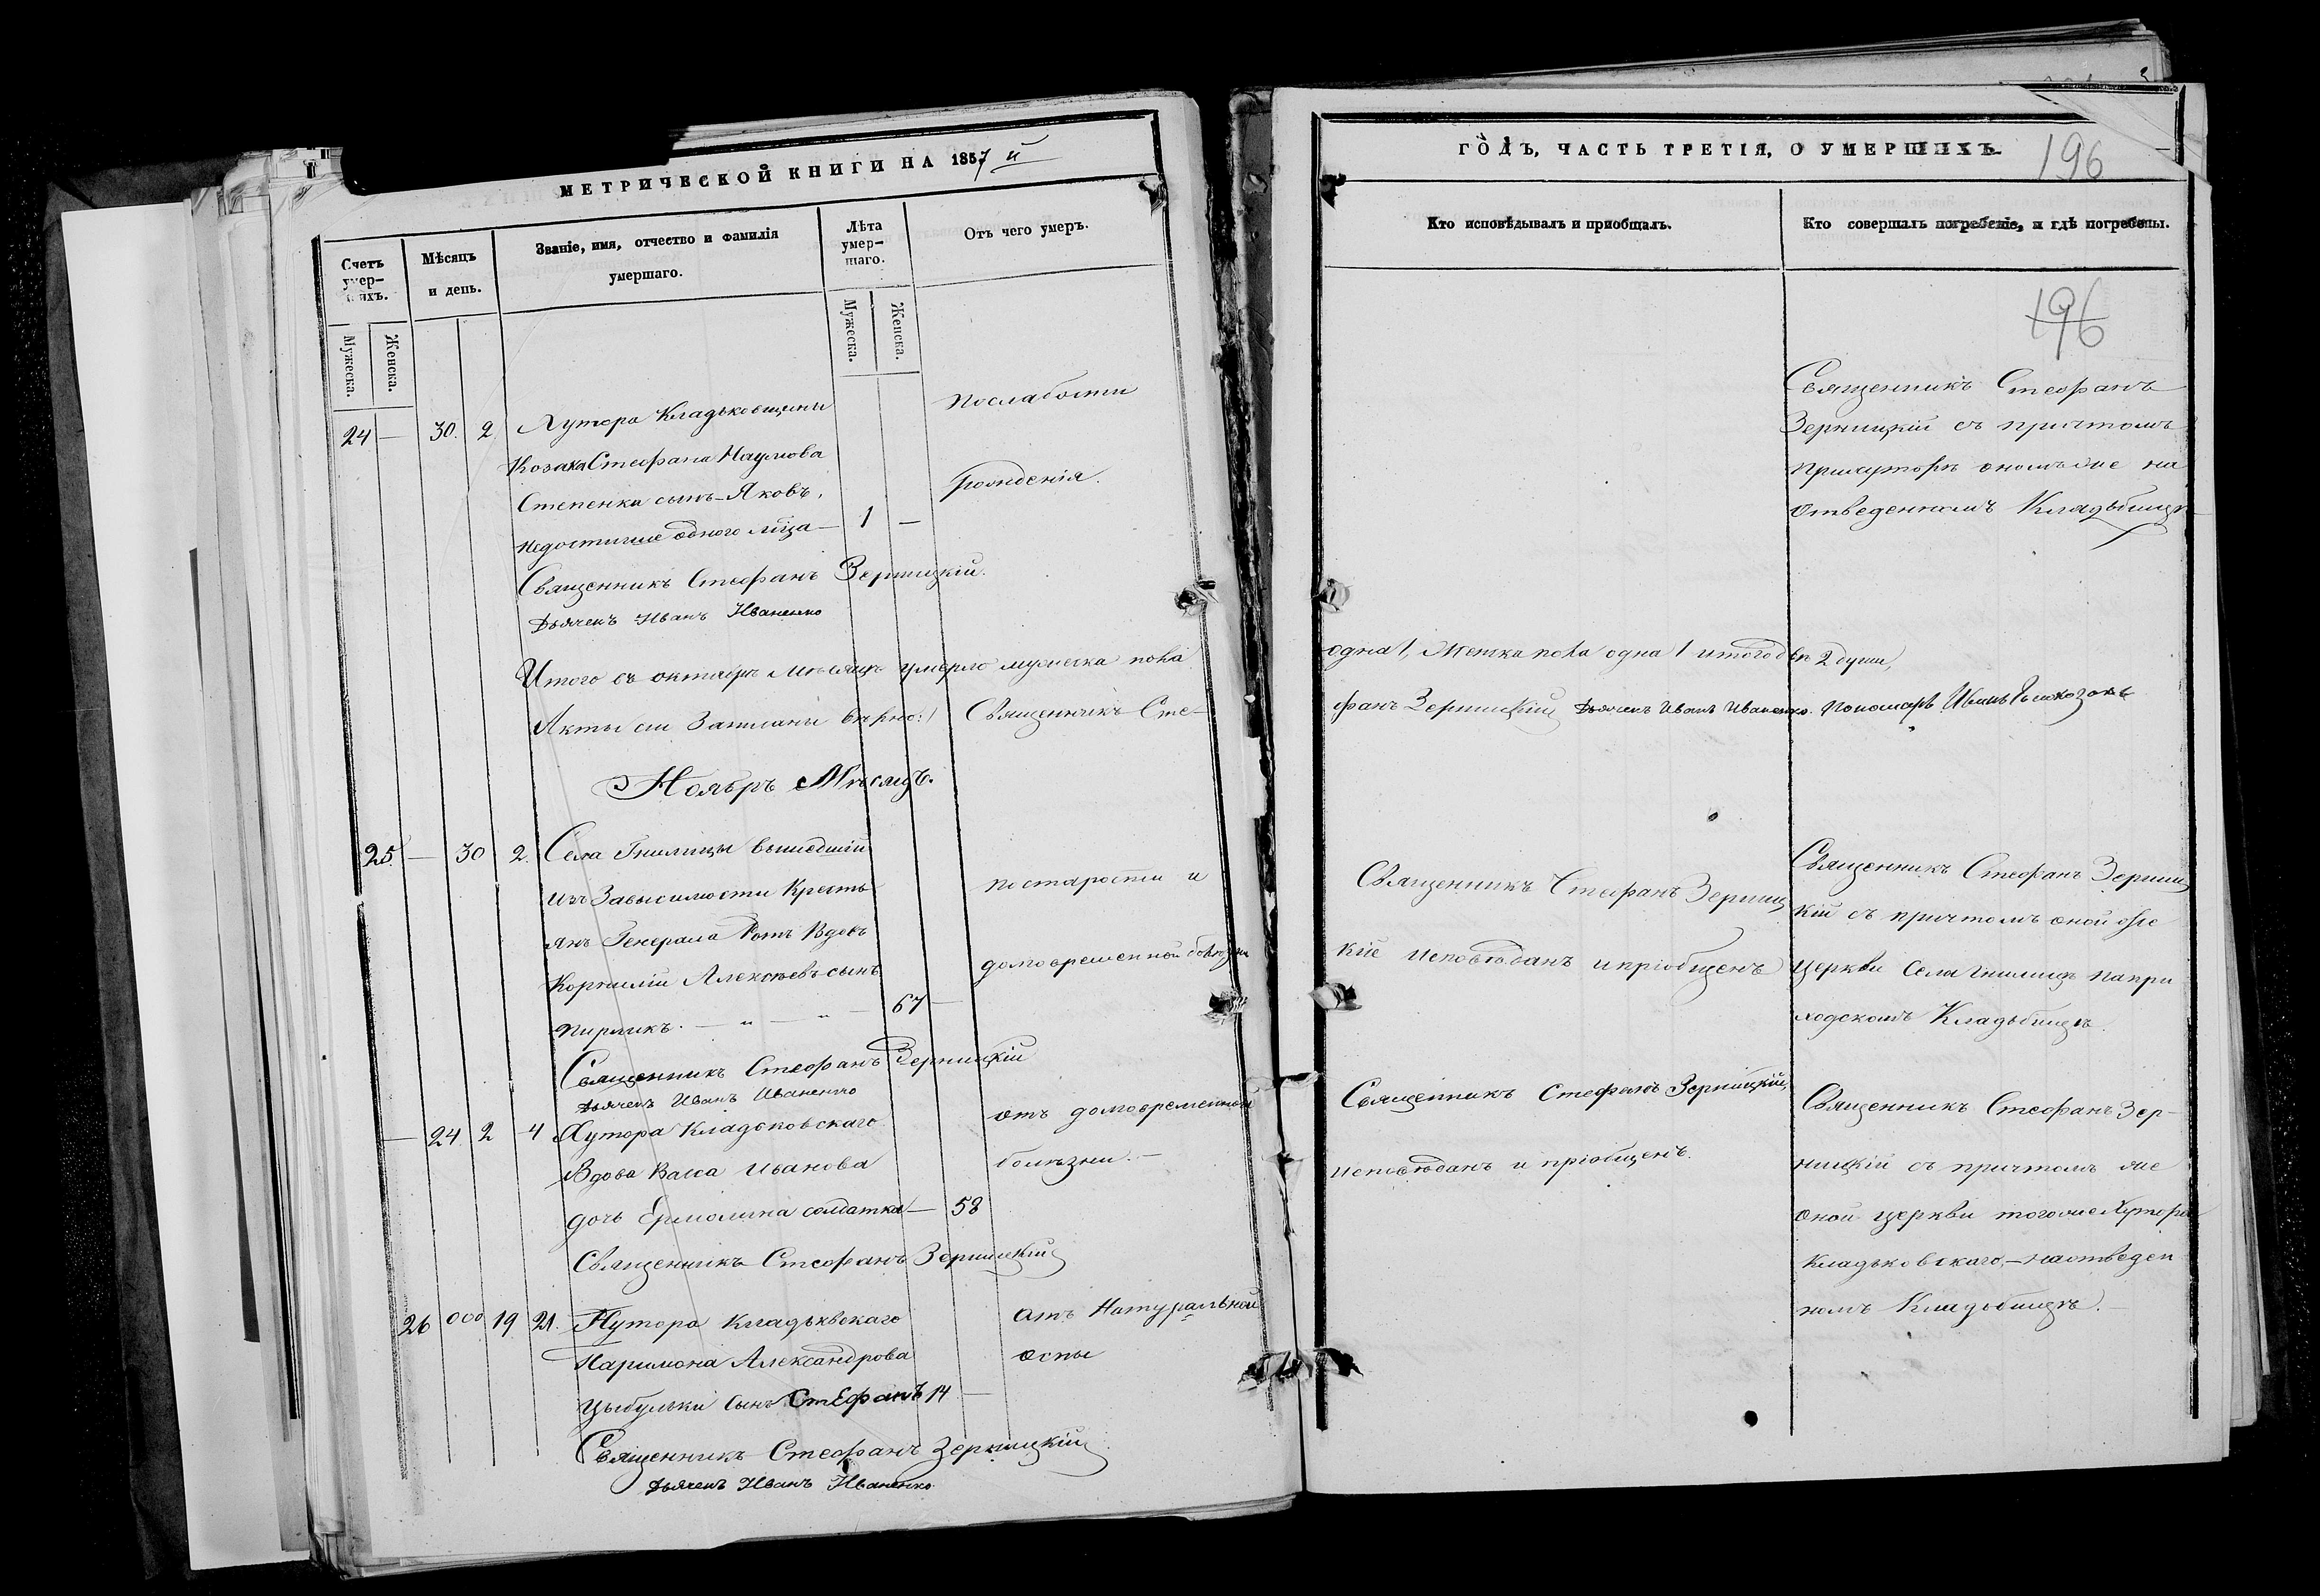 МЕТРИЧЕСКОЙ КНИГИ НА 1857 й
Счетъ умер-шихъ.
Мѣсяцъ и день.
Званіе, имя, отчество и фамилія умершаго.
Лѣта умер-шаго.
Отъ чего умеръ.
Мужеска.
Женска.
Мужеска.
Женска.
24 — 30. 2. Хутора Кладьковщины
Козака Стефана Наумова
Степенка сынъ Яковъ,
недостигше одного лѣта — 1 —
послабости
рожденія.
Священникъ Стефанъ Зерницкій.
Дьячекъ Иванъ Иваненко
Итого въ октябрѣ мѣсяцѣ умерло мужеска пола
Акты сіи записаны вѣрно:/ Священникъ Сте-
Ноябрь Мѣсяцъ.
25 — 30 2. Села Гнилицы вышедшій
изъ Зависимости Кресть
янъ Генерала Ротъ Вдовъ
Корнилій Алексѣевъ сынъ
Пирликъ. — " — " — 67 —
по старости и
долговременной болѣзни
Священникъ Стефанъ Зерницкій
Дьячекъ Иванъ Иваненко
— 24. 2 4 Хутора Кладьковскаго
Вдова Васса Иванова
дочь Ермолина солдатка — 58
отъ долговременной
болѣзни. —
Священникъ Стефанъ Зерницкій
26 000 19 21. Хутора Кладьквскаго
Харимона Александрова
Цыбульки сынъ СтЕфанЪ 14 —
отъ Натуральной
оспы
Священникъ Стефанъ Зерницкій
Дьячекъ Иванъ Иваненко
ГОДЪ, ЧАСТЬ ТРЕТІЯ, О УМЕРШИХЪ.
196
Кто исповѣдывалъ и пріобщалъ.
Кто совершалъ погребеніе, и гдѣ погребены.
196
Священникъ Стефанъ
Зерницкій съ причтомъ
прихуторѣ ономъ же на
отведенномъ Кладьбищѣ
одна 1, Женска пола одна 1 итого двѣ 2 души,
фанъ Зерницкій Дьячекъ Иванъ Иваненко. Пономарь
Священникъ Стефанъ Зерниц
кіе исповѣданъ и пріобщенъ
Священникъ Стефанъ Зерниц
кій съ причтомъ оной же
Церкви Села Гнилицъ напри
ходскомъ Кладьбищѣ.
Священникъ Стефанъ Зерницкій,
исповѣданъ и пріобщенъ.
Священникъ Стефанъ Зер-
ницкій съ причтомъ же
оной церкви того же Хутора
Кладьковскаго, — наотведен
номъ Кладьбищѣ. —